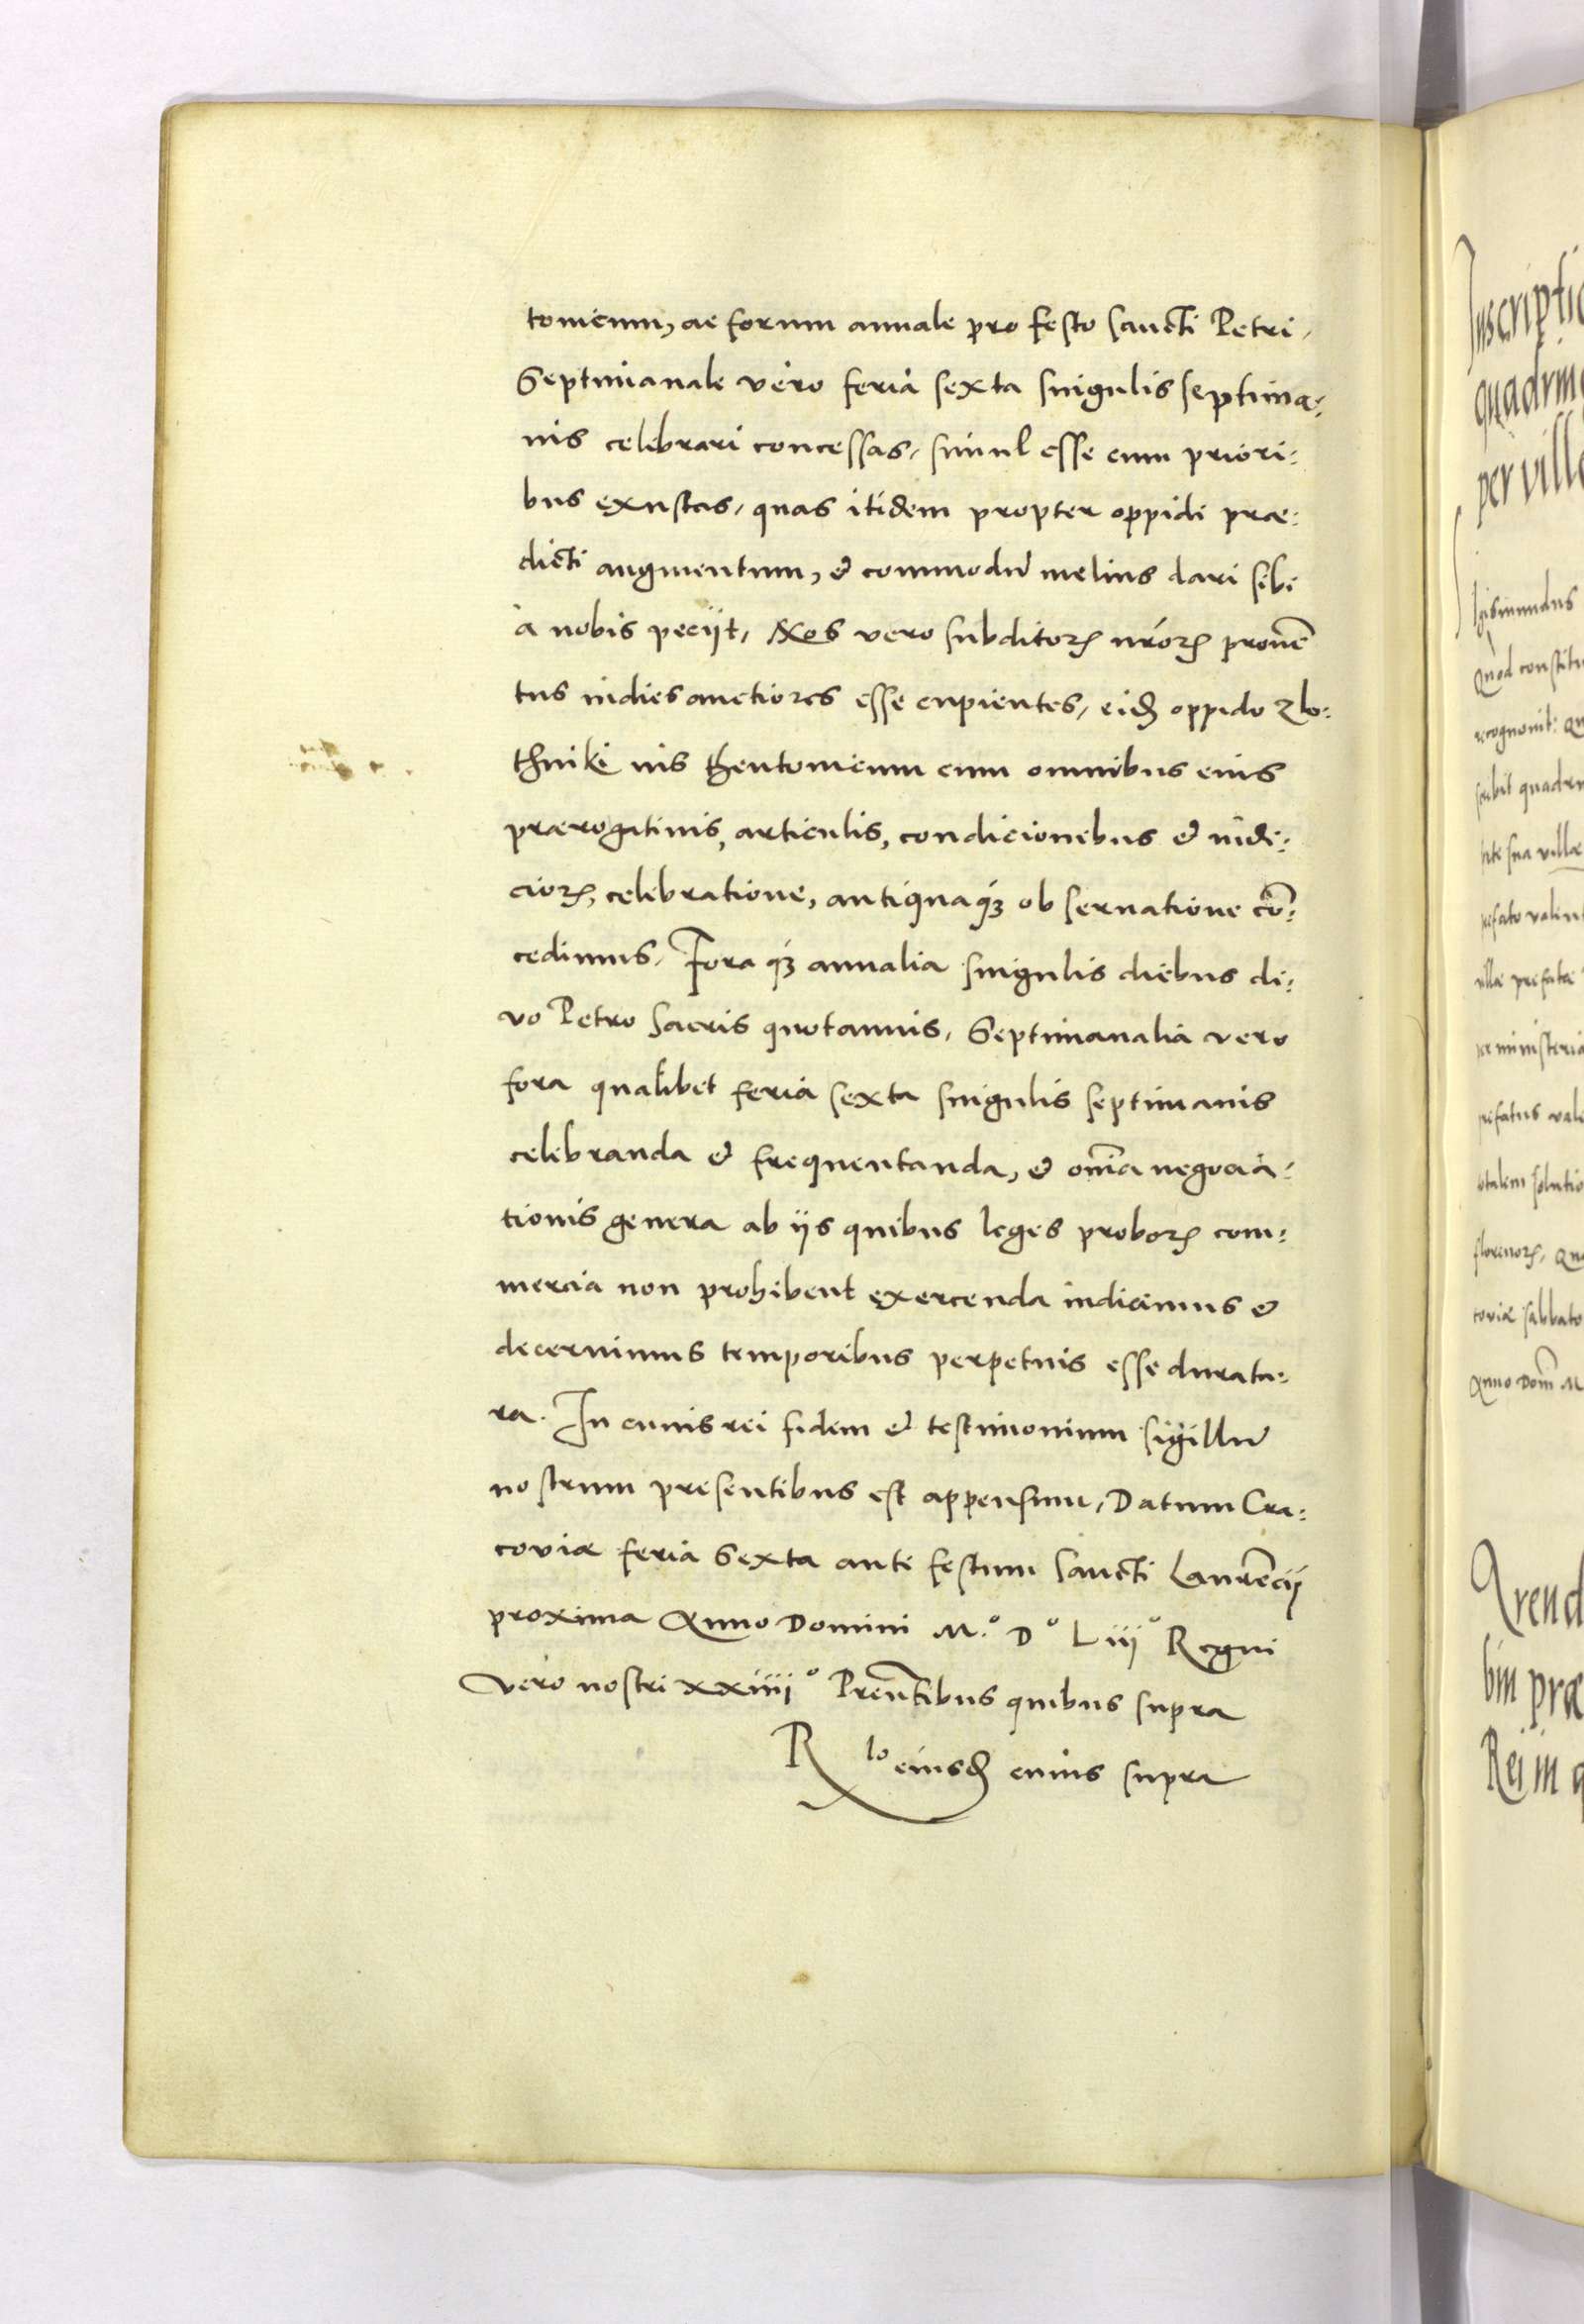 tonicum, ac forum annale pro festo Sancti Petri,
Septimanale vero feria sexta singulis septima:
nis celebrari concessas, simul esse cum priori:
bus exustas, quas itidem propter oppidi præ:
dicti augmentum, et commodū melius dari sibi
a nobis peciit, Nos vero subditorꝝ nr̄orꝝ proven̄
tus indies auctiores esse cupientes, eidꝫ oppido Zlo:
thniki ius theutonicum cum omnibus eius
prærogativis, articulis, condicionibus et iudi:
ciorꝝ, celebratione, antiquaqꝫ observatione cō:
cedimus, Foraqꝫ annalia singulis diebus di:
vo Petro Sacris quotannis, Septimanalia vero
fora qualibet feria sexta singulis septimanis
celebranda et frequentanda, et om̄ia negocia:
tionis genera ab iis quibus leges proborꝝ com:
mercia non prohibent exercenda indicimus et
decernimus temporibus perpetuis esse duratu:
ra. In cuius rei fidem et testimonium sigillū
nostrum presentibus est appensum, Datum Cra:
coviæ feria Sexta ante festum Sancti Laurēcij
proxima Anno Domini M.º Dº Liijº Regni
vero nostri xxiiijº Pren̄tibus quibus supra
Rlo eiusdꝫ cuius supra
Inscriptio
quadring
per vill
Quod constitu
recognovit: Qu
prefato valen
per ministeria
prefatus vale
totalem solutio
florenorꝝ, Qu
coviæ sabbato
Anno Dom̄ M
Arend
bin præ
Rei in q